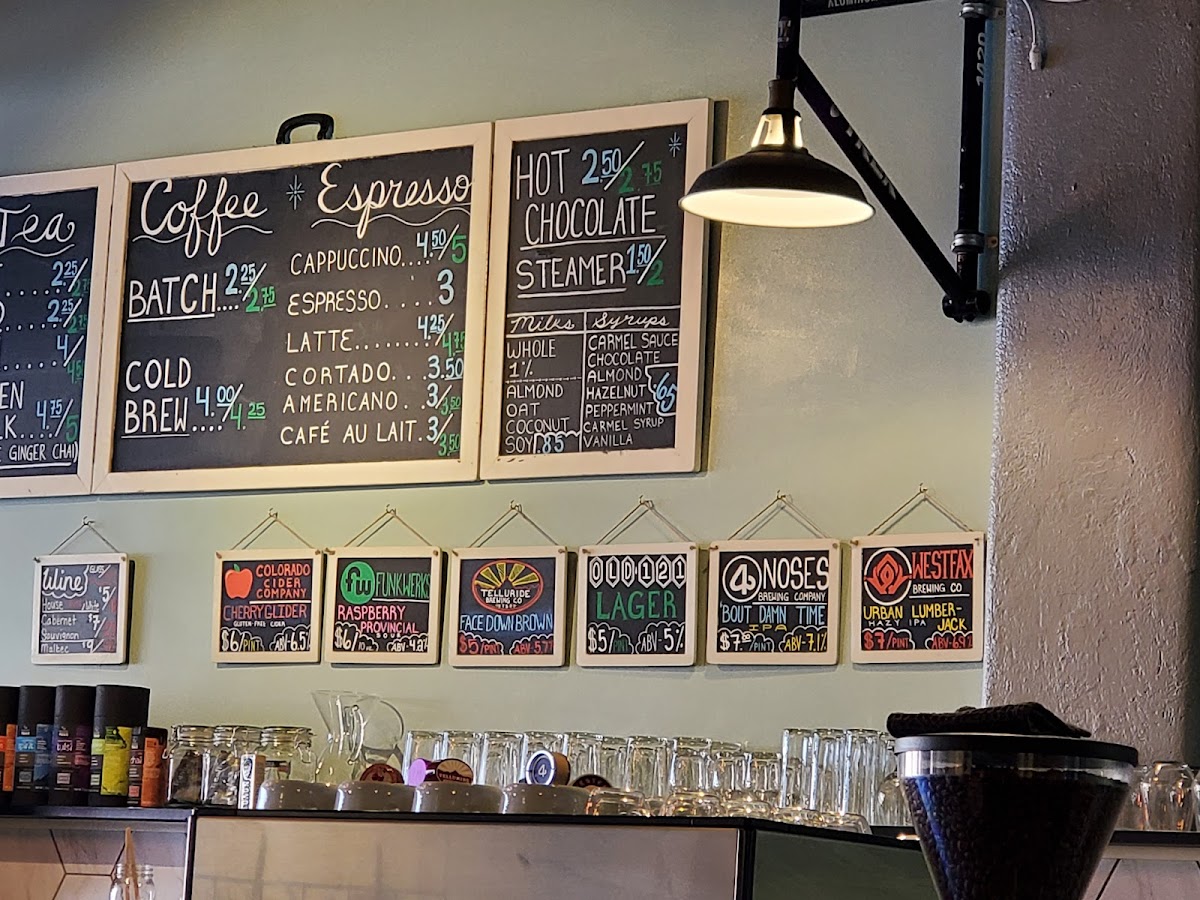 Tea
2.25/2.75
2.25/2.75
4/4.50
4.75/5
GINGER CHAI)
Coffee
BATCH....2.25/2.75
COLD
BREW....4.00/4.25
Espresso
CAPPUCCINO....4.50/5
ESPRESSO....3
LATTE.......4.25/4.75
CORTADO...3.50
AMERICANO..3/3.50
CAFÉ AU LAIT.3/3.50
HOT 2.50/2.75
CHOCOLATE
STEAMER 1.50/2
Milks
WHOLE
1%
ALMOND
OAT
COCONUT
SOY .85
Syrups
CARMEL SAUCE
CHOCOLATE
ALMOND
HAZELNUT .65
PEPPERMINT
CARMEL SYRUP
VANILLA
1420
Wine
House $5
Cabernet $7
Sauvignon
Malbec
COLORADO
CIDER
COMPANY
CHERRY GLIDER
GLUTEN-FREE CIDER
$6/PINT ABV-6.5%
fw FUNKWERKS
RASPBERRY
PROVINCIAL
SOUR
$6/10 oz ABV-4.2%
TELLURIDE
BREWING CO
FACE DOWN BROWN
$5/PINT ABV-5.7%
OLD 121
LAGER
$5/PINT ABV-5%
4 NOSES
BREWING COMPANY
'BOUT DAMN TIME
IPA
$7.00/PINT ABV-7.1%
WESTFAX
BREWING CO
URBAN LUMBER-
JACK
HAZY IPA
$7/PINT ABV-6.9%
4